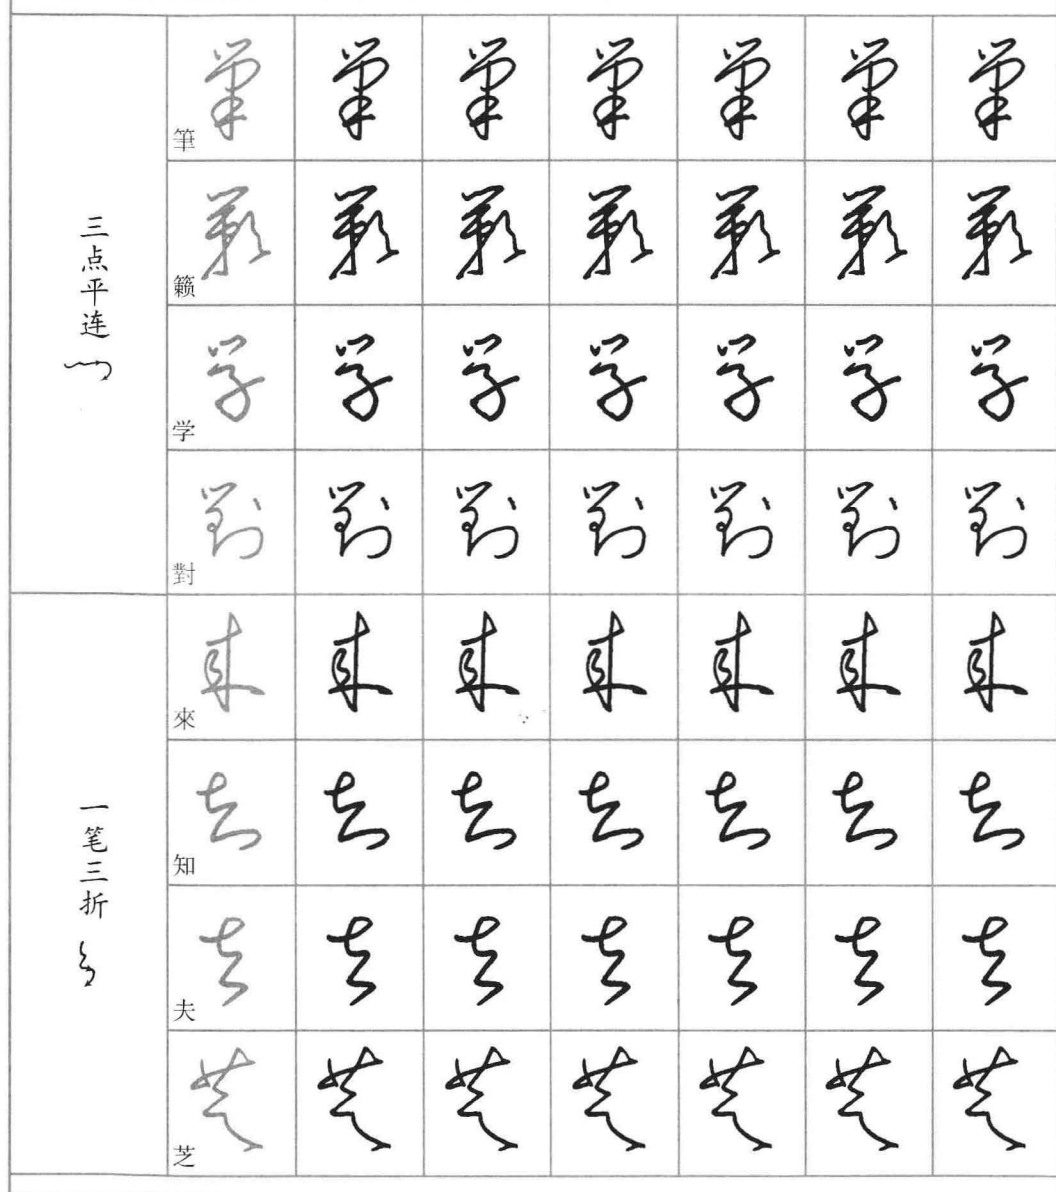 三点平连
筆 筆 筆 筆 筆 筆 筆 筆
籁 籁 籁 籁 籁 籁 籁 籁
学 学 学 学 学 学 学 学
對 對 對 對 對 對 對 對
一笔三折
來 來 來 來 來 來 來 來
知 知 知 知 知 知 知 知
夫 夫 夫 夫 夫 夫 夫 夫
芝 芝 芝 芝 芝 芝 芝 芝